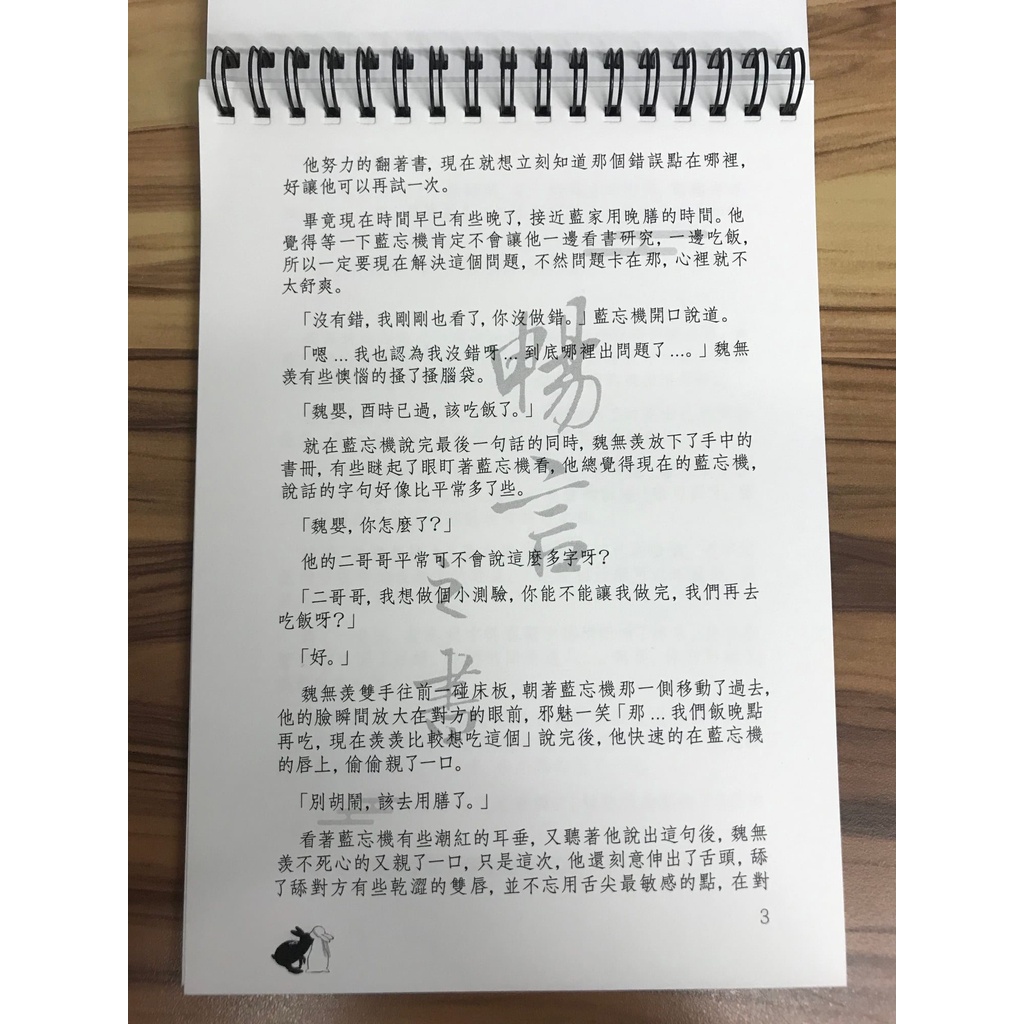 他努力的翻著書,現在就想立刻知道那個錯誤點在哪裡,
好讓他可以再試一次。
畢竟現在時間早已有些晚了,接近藍家用晚膳的時間。他
覺得等一下藍忘機肯定不會讓他一邊看書研究,一邊吃飯,
所以一定要現在解決這個問題,不然問題卡在那,心裡就不
太舒爽。
「沒有錯,我剛剛也看了,你沒做錯。」藍忘機開口說道。
「嗯...我也認為我沒錯呀...到底哪裡出問題了...。」魏無
羨有些懊惱的搔了搔腦袋。
「魏嬰,酉時已過,該吃飯了。」
就在藍忘機說完最後一句話的同時,魏無羨放下了手中的
書冊,有些瞇起了眼盯著藍忘機看,他總覺得現在的藍忘機,
說話的字句好像比平常多了些。
「魏嬰,你怎麼了?」
他的二哥哥平常可不會說這麼多字呀?
「二哥哥,我想做個小測驗,你能不能讓我做完,我們再去
吃飯呀?」
「好。」
魏無羨雙手往前一碰床板,朝著藍忘機那一側移動了過去,
他的臉瞬間放大在對方的眼前,邪魅一笑「那...我們飯晚點
再吃,現在羨羨比較想吃這個」說完後,他快速的在藍忘機
的唇上,偷偷親了一口。
「別胡鬧,該去用膳了。」
看著藍忘機有些潮紅的耳垂,又聽著他說出這句後,魏無
羨不死心的又親了一口,只是這次,他還刻意伸出了舌頭,舔
了舔對方有些乾澀的雙唇,並不忘用舌尖最敏感的點,在對
3
暢言之書